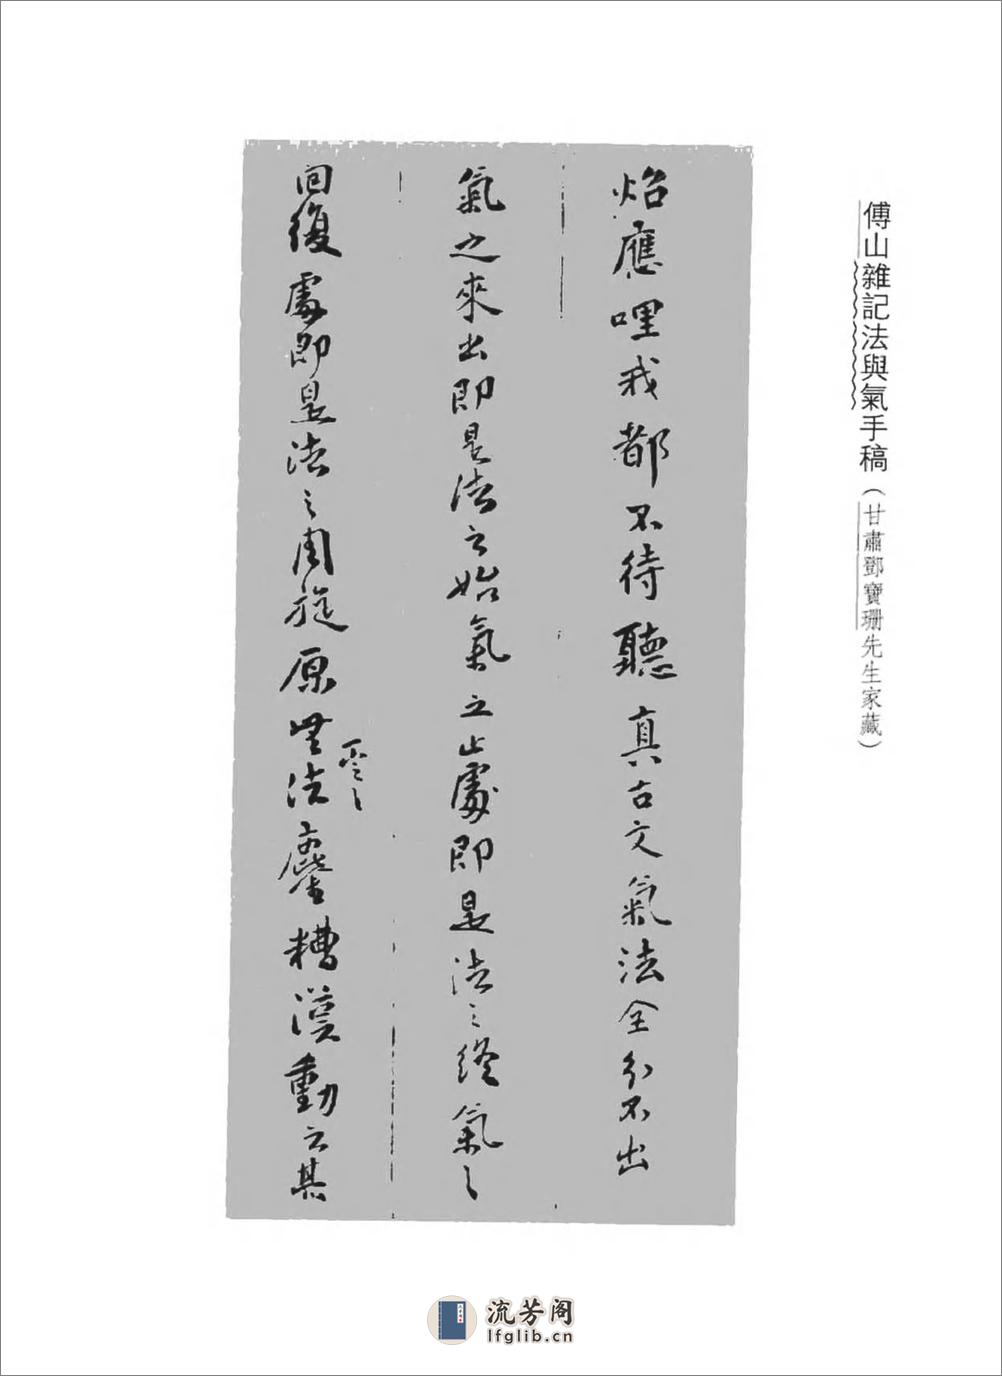 傅山雜記法與氣手稿（甘肅鄧寶珊先生家藏）
炤應哩我都不待聽真古文氣法全分不出
氣之來出即是法之始氣之止處即是法之終氣之
回復處即是法之周旋原無法鏖糟漢動云其
流芳阁
lfglib.cn